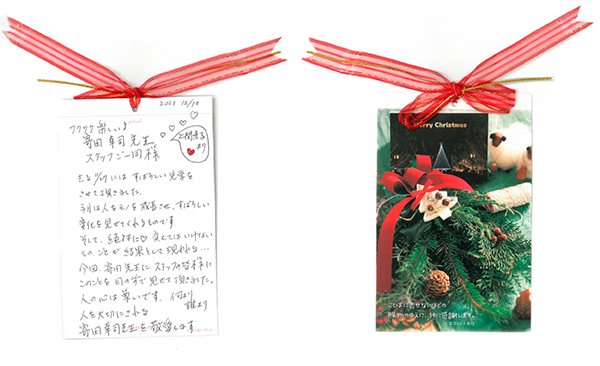 2023 12/10
ワクワク楽しい♪
寄田幸司先生
スタッフご一同様
より
させて頂きました。
年月は人もモノを成長させ、すばらしい
変化を見せてくれるものです
そして、絶対に♡変えてはいけない
もの、ことが結果として現れる…
今回、寄田先生に スタッフの皆様に
このことを目の前で見せて頂きました。
人の心は尊いです。何より
誰より
人を大切にされる
寄田幸司先生を敬愛します
Merry Christmas
ことばに出せないほどの
神に感謝します。